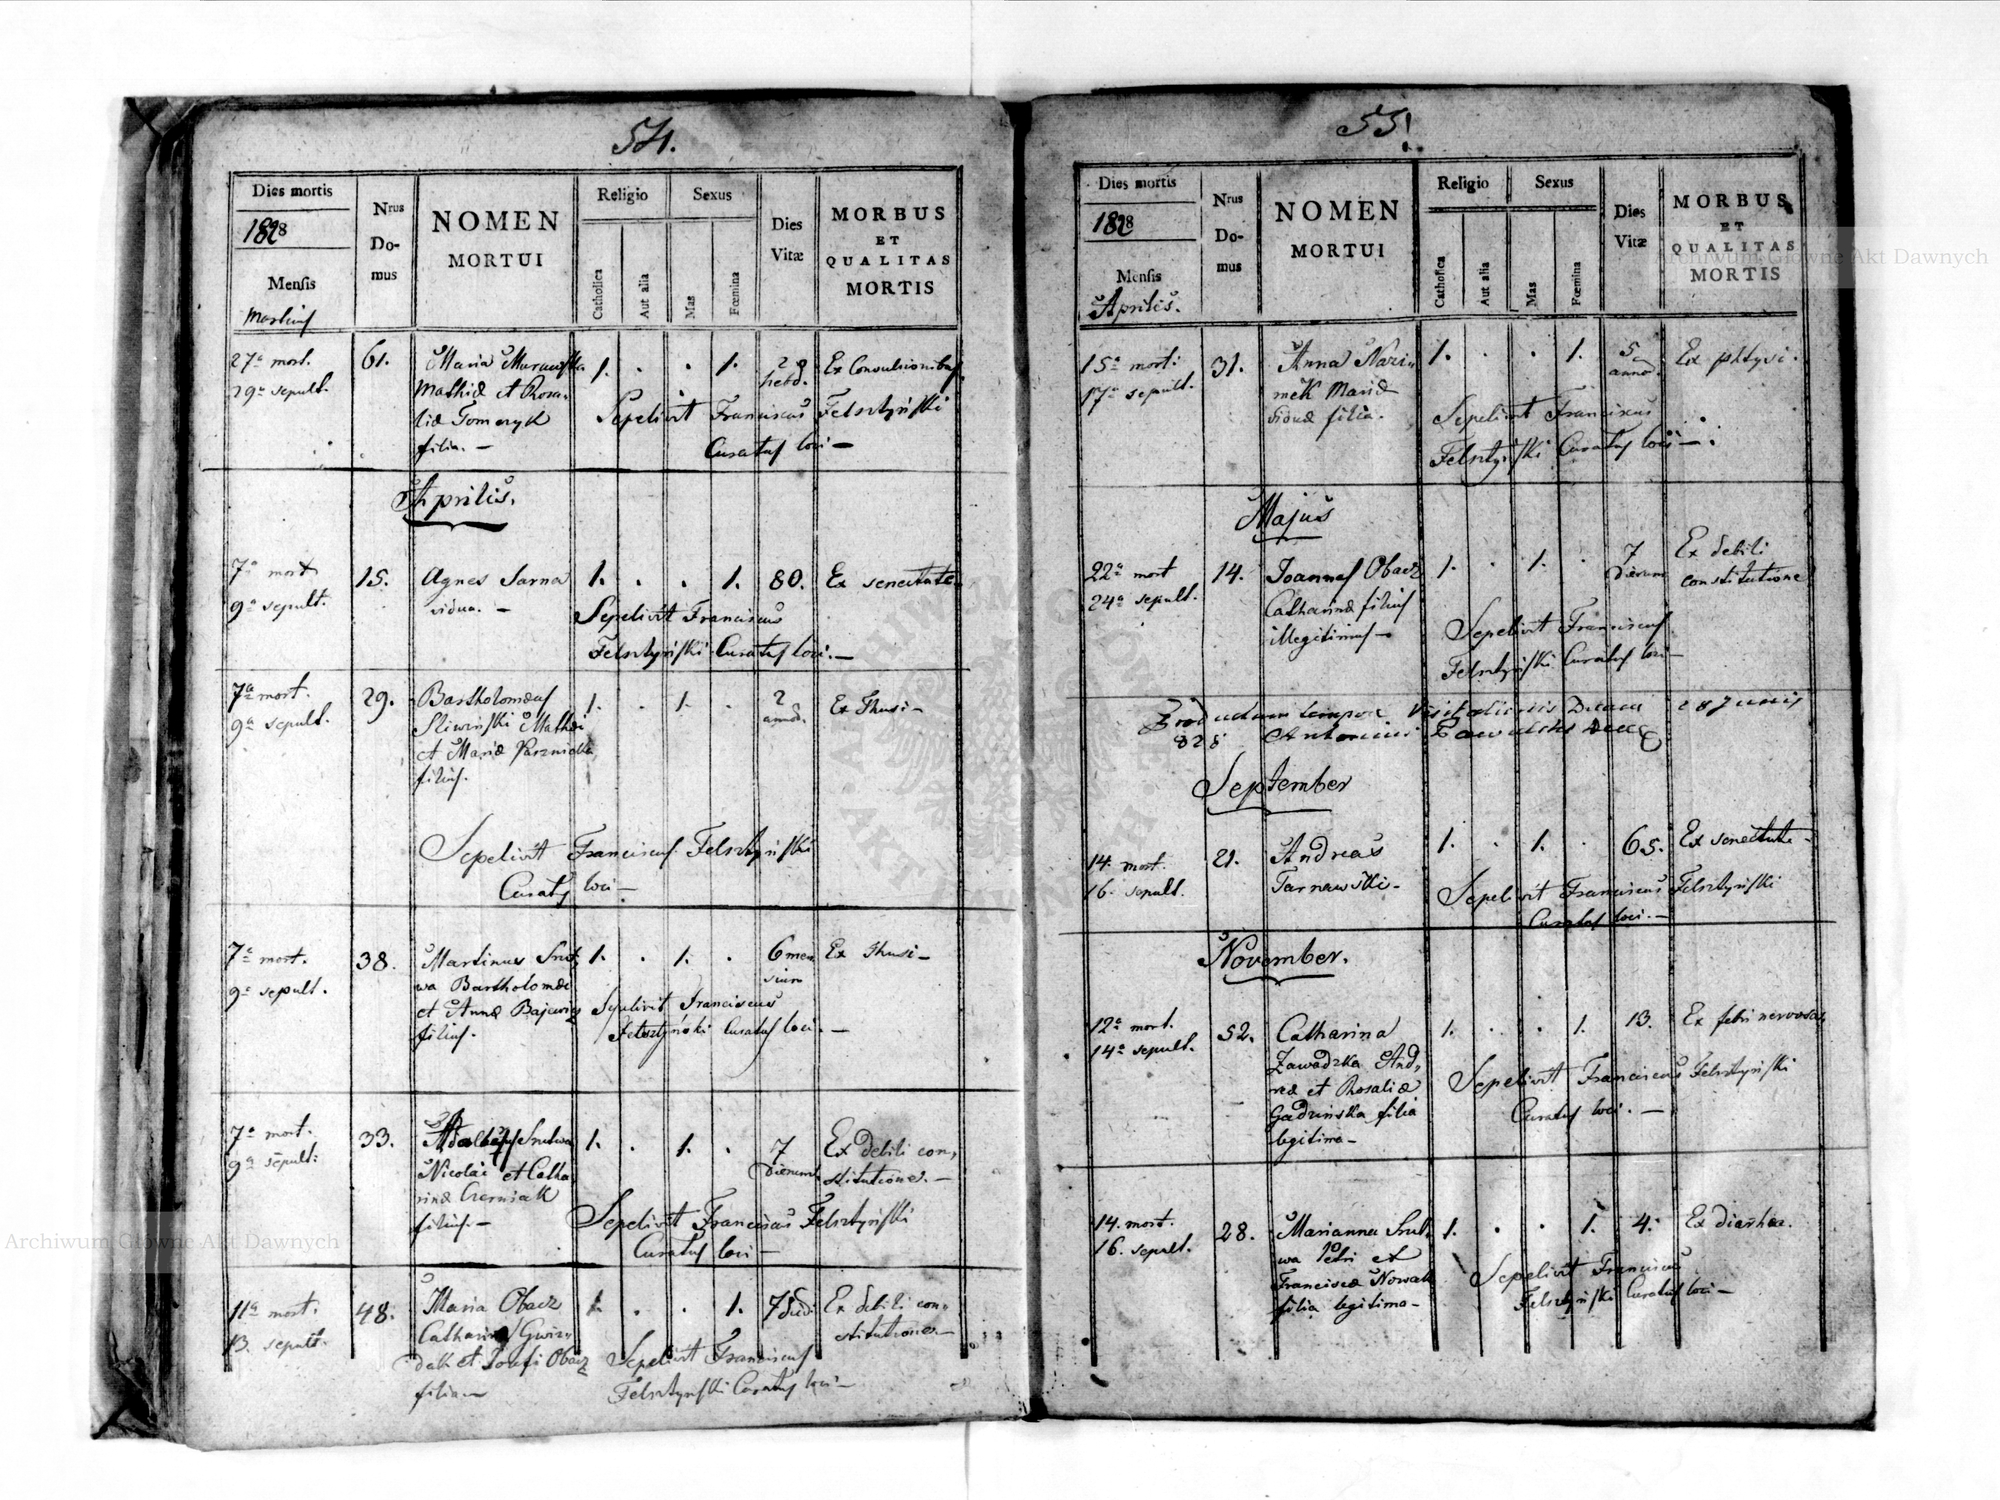 54.
Dies mortis
1828
Mensis
Martius
Nrus
Do-
mus
NOMEN
MORTUI
Religio
Catholica
Aut alia
Sexus
Mas
Fœmina
Dies
Vitæ
MORBUS
ET
QUALITAS
MORTIS
27a mort.
29a sepult.
61.
Maria
Mathiæ et Rosa-
liæ Tomczyk
filia. —
1. . . 1.
hebd.
Ex Convulsionibus
Sepelivit Franciscus Felsztyński
Curatus loci —
Aprilis.
7a mort.
9a sepult.
15.
Agnes Sarna
vidua. —
1. . . 1.
80.
Ex senectute
Sepelivit Franciscus
Felsztyński Curatus loci. —
7a mort.
9a sepult.
29.
Bartholomæus
Sliwiński Mathæi
et Mariæ
filius.
1. . 1. .
2
Ex Thusi —
Sepelivit Franciscus Felsztyński
Curatus loci —
7a mort.
9a sepult.
38.
Martinus Srut-
wa Bartholomæi
et Annæ
filius.
1. . 1. .
6 men-
sium
Ex Thusi —
Sepelivit Franciscus
Felsztyński Curatus loci. —
7a mort.
9a sepult.
33.
Adalbertus Srutwa
Nicolai et Catha-
rinæ Czerniak
filius. —
1. . 1. .
7
dierum
Ex debili con-
stitutione. —
Sepelivit Franciscus Felsztyński
Curatus loci —
11a mort.
13. sepult.
48.
Maria Obacz
Catharinæ Gwiz-
dak et Josefi Obacz
filia. —
1. . . 1.
7
Ex debili con-
stitutione —
Sepelivit Franciscus
Felsztyński Curatus loci —
55.
Dies mortis
1828
Mensis
Aprilis.
Nrus
Do-
mus
NOMEN
MORTUI
Religio
Catholica
Aut alia
Sexus
Mas
Fœmina
Dies
Vitæ
MORBUS
ET
QUALITAS
MORTIS
15a mort.
17a sepult.
31.
Anna
filia.
1. . . 1.
5
Ex phtysi.
Sepelivit Franciscus
Felsztyński Curatus loci —
Majus
22a mort
24a sepult.
14.
Joannes Obacz
Catharinæ filius
illegitimus —
1. . 1. .
7
dierum
Ex debili
constitutione
Sepelivit Franciscus
Felsztyński Curatus loci —
tempore Visitationis 28 Junii
828 Antonius
September
14. mort.
16. sepult.
21.
Andreas
Tarnawski —
1. . 1. .
65.
Ex senectute —
Sepelivit Franciscus Felsztyński
Curatus loci. —
November.
12a mort.
14a sepult.
52.
Catharina
Zawadzka And-
reæ et Rosaliæ
Gadzińska filia
legitima —
1. . . 1.
13.
Ex febri nervosa
Sepelivit Franciscus Felsztyński
Curatus loci. —
14. mort.
16. sepult.
28.
Marianna Srut-
wa Petri et
Franciscæ Nowak
filia legitima —
1. . . 1.
4.
Ex diarhea.
Sepelivit Franciscus
Felsztyński Curatus loci —
Archiwum Główne Akt Dawnych
Archiwum Główne Akt Dawnych